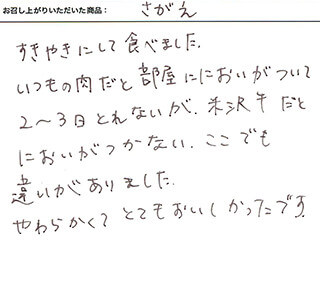 お召し上がりいただいた商品： さがえ
すきやきにして食べました.
いつもの肉だと部屋ににおいがついて
2〜3日とれないが. 米沢牛だと
においがつかない. ここでも
違いがありました.
やわらかくてとてもおいしかったです.